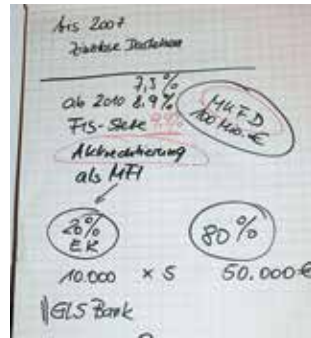 bis 2007
Zinslose Darlehen
7,5%
ab 2010 8,9%
MKFD
100 Mio. €
FIS-Seite 9,9%
Akkreditierung
als MFI
20%
EK
80%
10.000 × 5 50.000€
GLS Bank